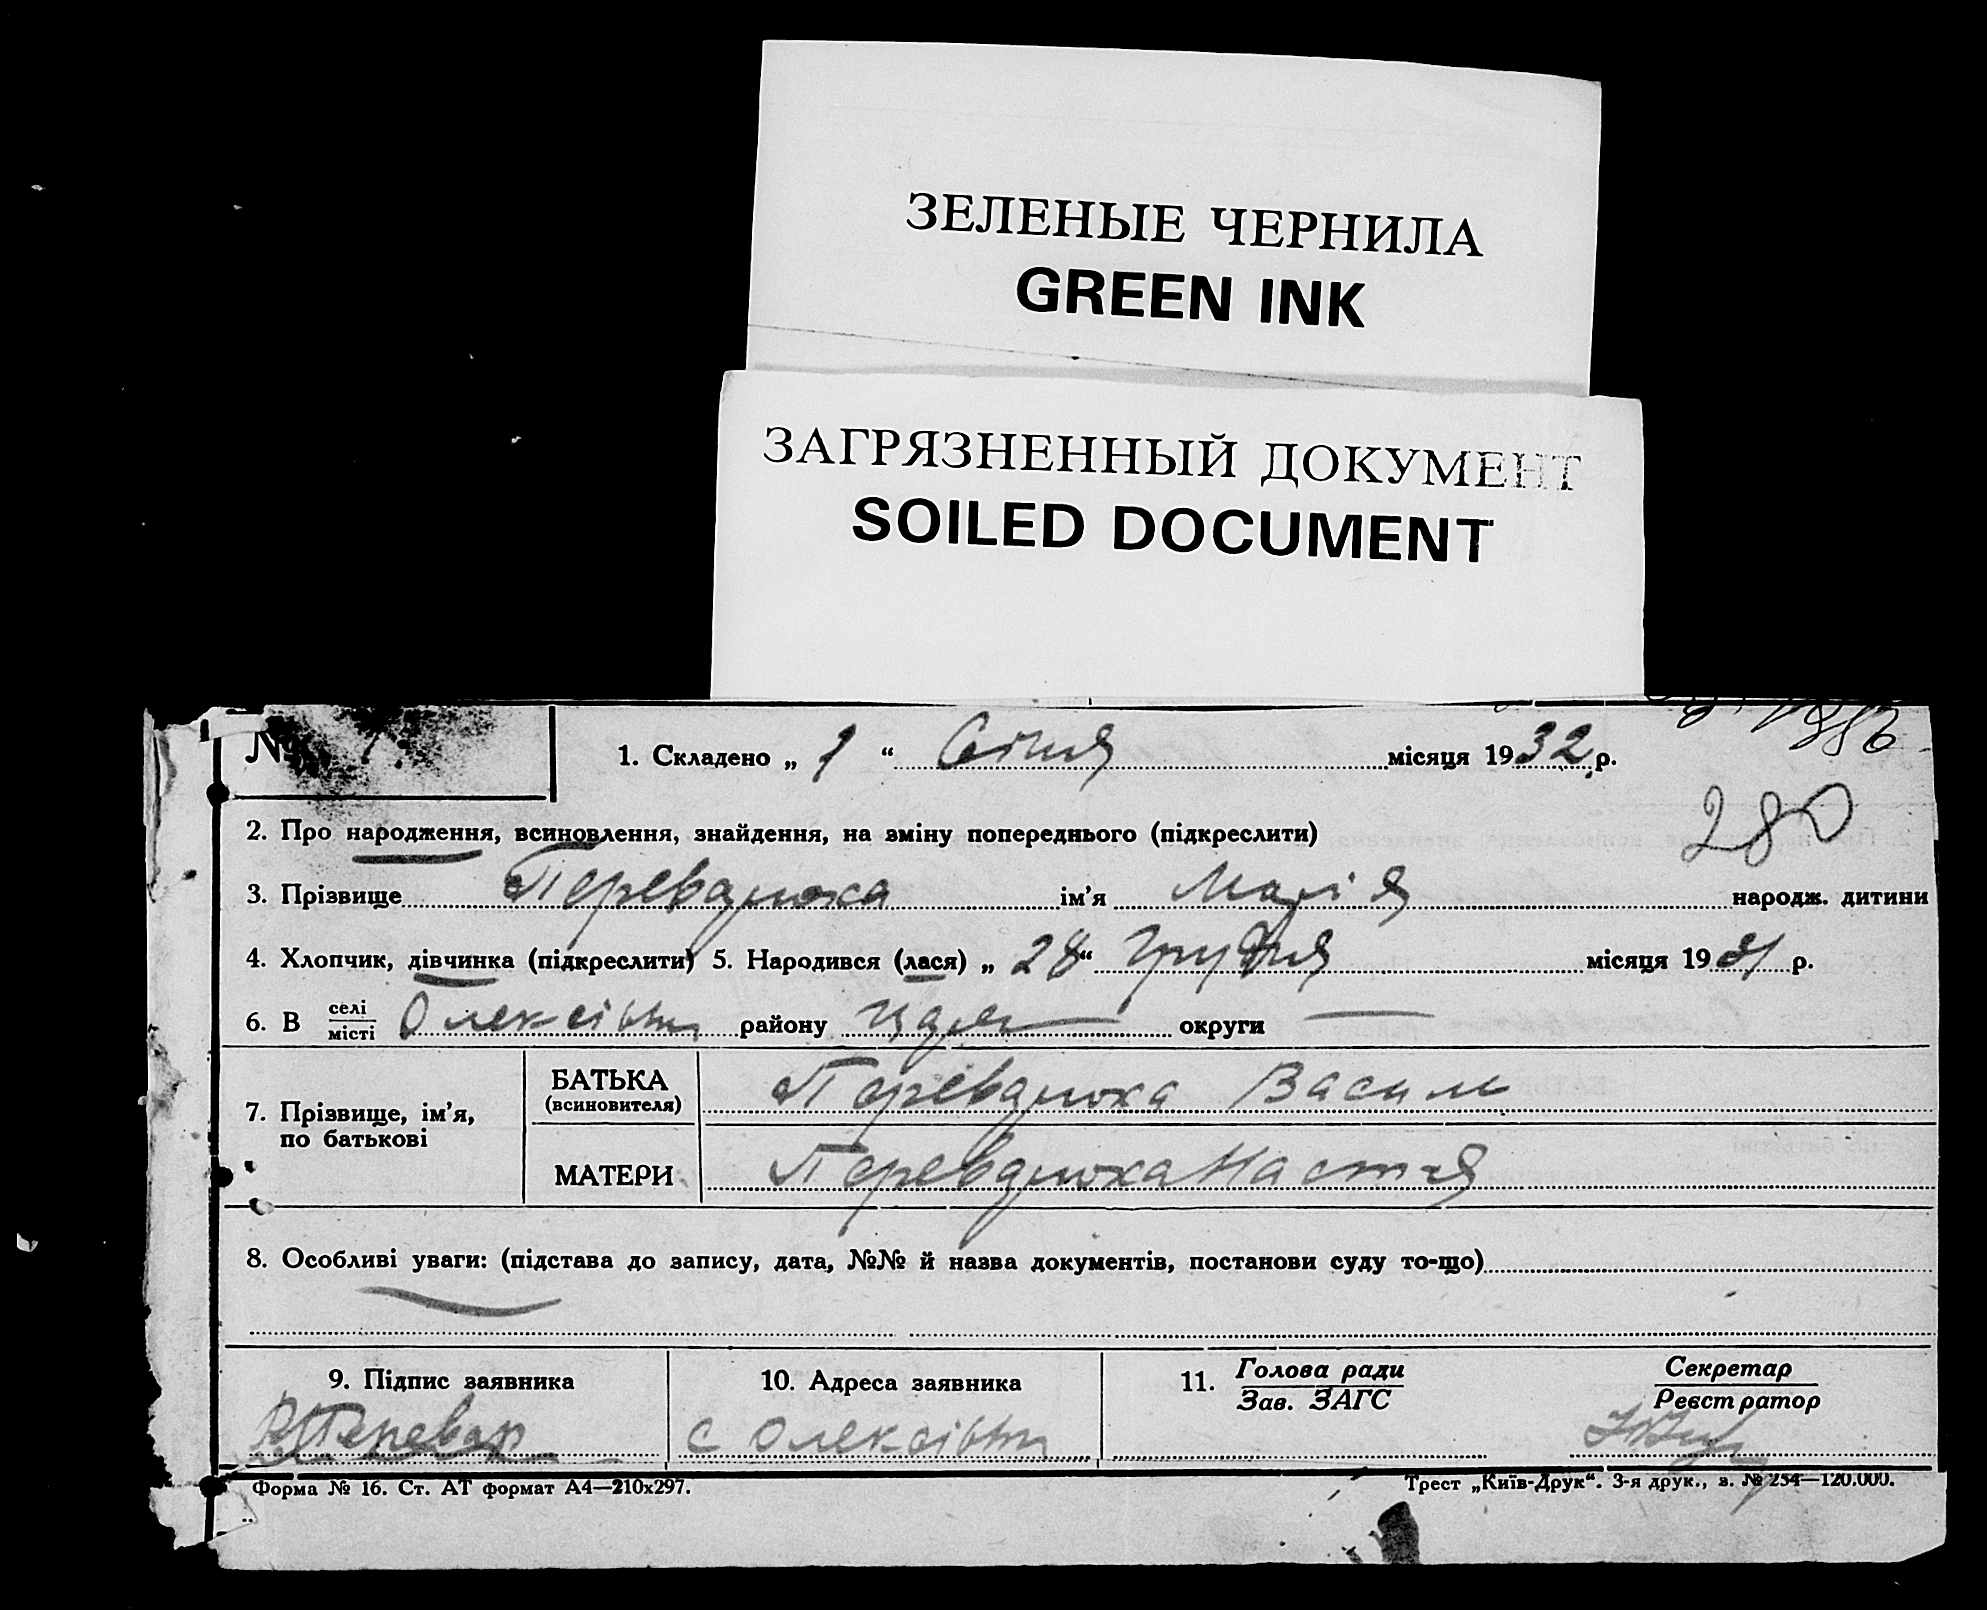 ЗЕЛЕНЫЕ ЧЕРНИЛА
GREEN INK
ЗАГРЯЗНЕННЫЙ ДОКУМЕНТ
SOILED DOCUMENT
№
1. Складено „ 1 “ Січня місяця 1932 р.
280
2. Про народження, всиновлення, знайдення, на зміну попереднього (підкреслити)
3. Прізвище ім’я Марія народж. дитини
4. Хлопчик, дівчинка (підкреслити) 5. Народився (лася) „ 28 “ Грудня місяця 1931 р.
6. В селі/місті Олексівни району округи —
7. Прізвище, ім’я, по батькові
БАТЬКА (всиновителя) Василь
МАТЕРИ Настя
8. Особливі уваги: (підстава до запису, дата, №№ й назва документів, постанови суду то-що)
9. Підпис заявника
10. Адреса заявника
11. Голова ради / Зав. ЗАГС
Секретар / Реєстратор
с Олексівни
Форма № 16. Ст. АТ формат А4—210х297.
Трест „Київ-Друк“. 3-я друк., з. № 254—120.000.